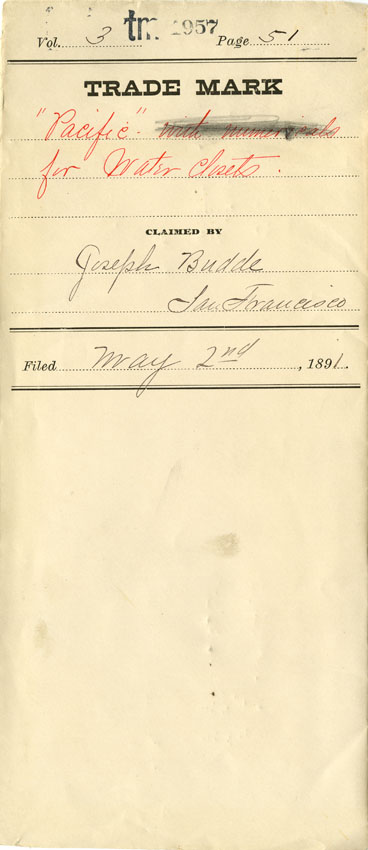 Vol. 3 tm 1957 Page 51
TRADE MARK
"Pacific" with numericals
for Water Closets.
CLAIMED BY
Joseph Budde
San Francisco
Filed May 2nd, 1891.